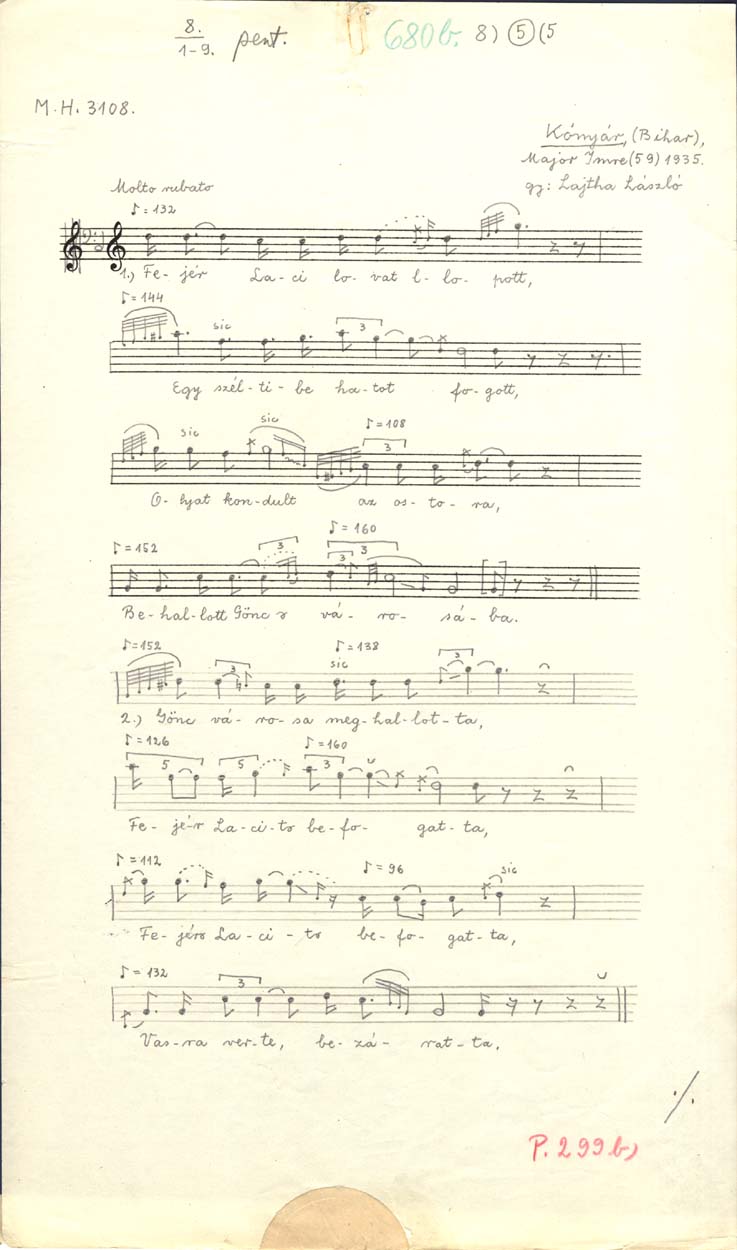 8.
1-9. pent. 680b. 8) 5 (5
M.H. 3108.
Kónyár, (Bihar),
Major Imre (59) 1935.
gy: Lajtha László
Molto rubato
♪ = 132
1.) Fe- jér La- ci lo- vat l- lo- pott,
♪ = 144
sic 3
Egy szél- ti- be ha- tot fo- gott,
sic sic ♪ = 108
3
O- lyat kon- dult az os- to- ra,
♪ = 152 3 ♪ = 160
3 3
Be- hal- lott Gönc vá- ro- sá- ba.
♪ = 152 3 sic ♪ = 138 3
2.) Gönc vá- ro- sa meg- hal- lot- ta,
♪ = 126 ♪ = 160
5 5 3
Fe- jé-r La- ci- to be- fo- gat- ta,
♪ = 112 ♪ = 96 sic
Fe- jérs La- ci - to be- fo- gat- ta,
♪ = 132
3
Vas- ra ver- te, be- zá- rat- ta.
·/.
P. 299b)